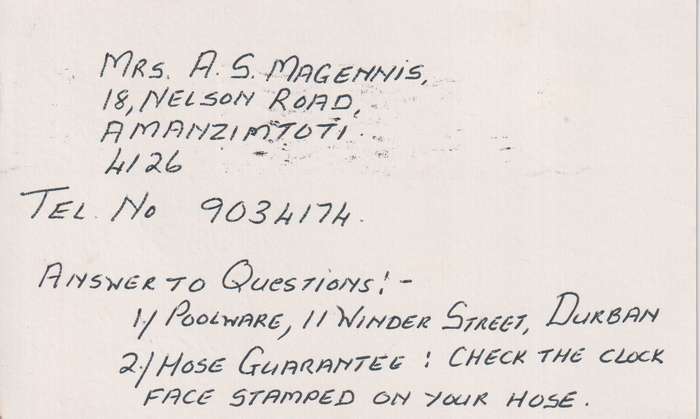 MRS. A. S. MAGENNIS,
18, NELSON ROAD,
AMANZIMTOTI.
4126
TEL. NO 9034174.
ANSWER TO QUESTIONS:-
1/ POOLWARE, 11 WINDER STREET, DURBAN
2/ HOSE GUARANTEE: CHECK THE CLOCK
FACE STAMPED ON YOUR HOSE.